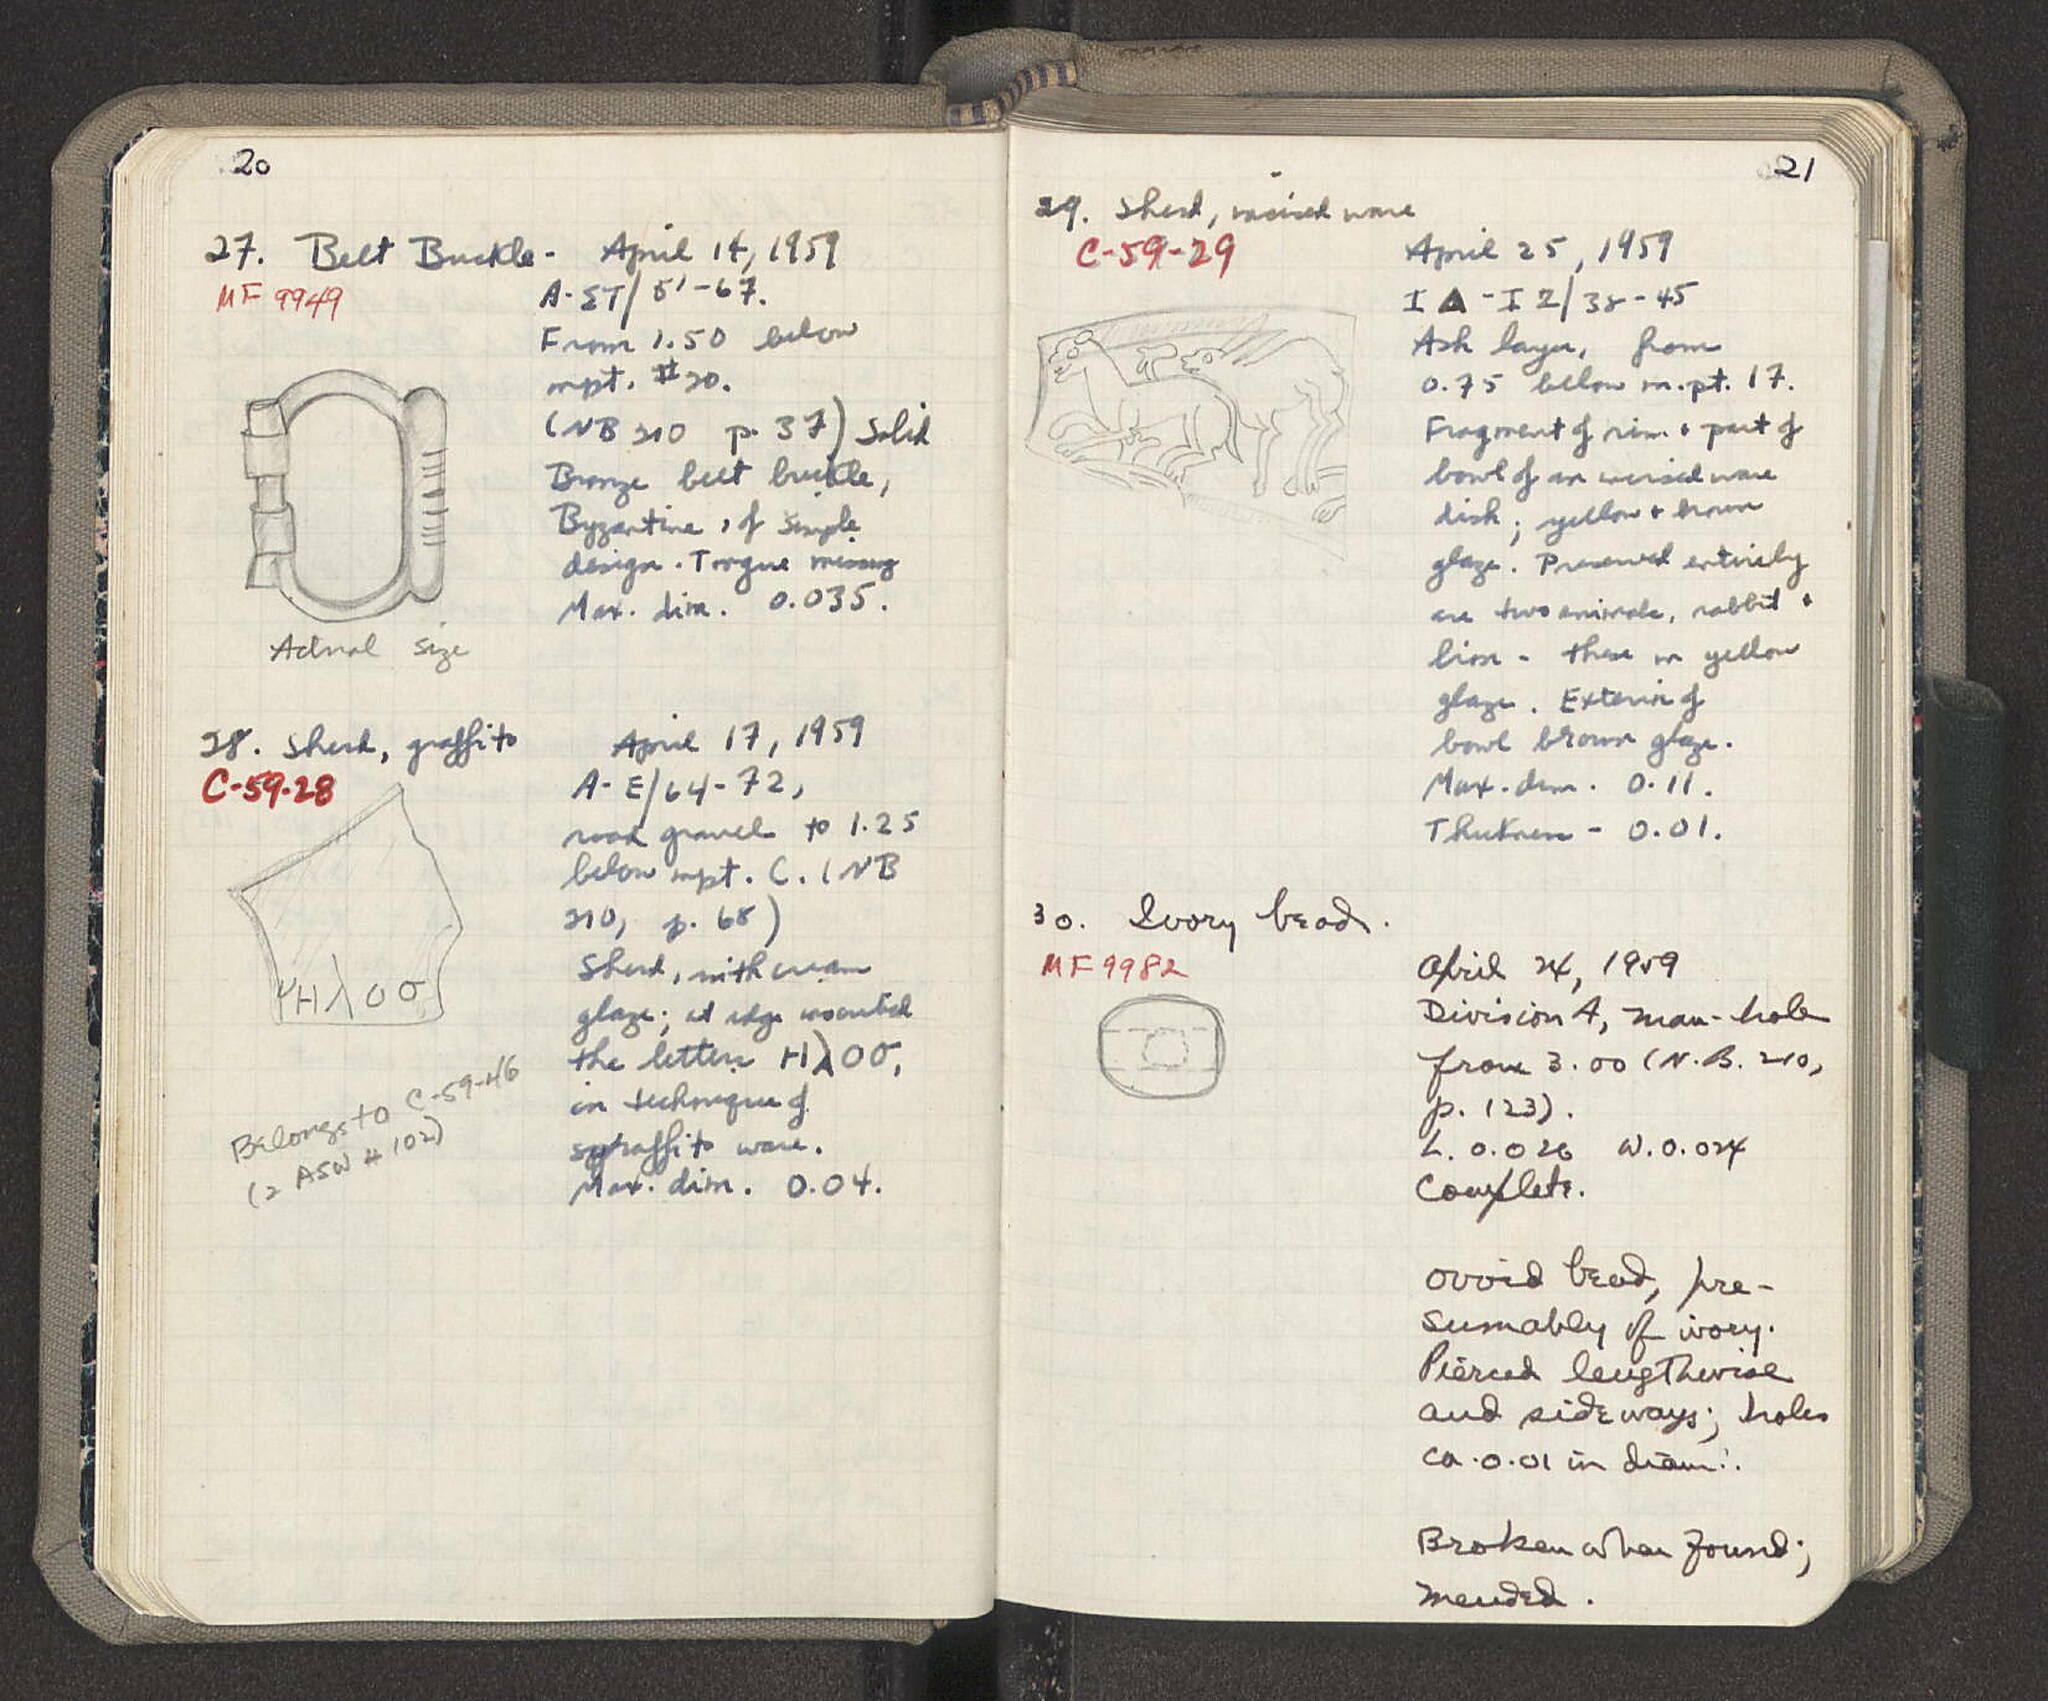 20
27. Belt Buckle - April 14, 1959
MF 9949
A-ΣT/51-67.
From 1.50 below
mpt. #20.
(NB 210 p. 37) Solid
Bronze belt buckle,
Byzantine, of simple
design. Tongue missing
Max. dim. 0.035.
Actual size
28. Sherd, graffito April 17, 1959
C-59-28
A-E/64-72,
road gravel to 1.25
below mpt. C. (NB
210, p. 68)
Sherd, with cream
glaze; at edge inscribed
the letters Hλ00σ,
in technique of
sgraffito ware.
Max. dim. 0.04.
Hλ00σ
Belongs to C-59-46
(2 ASW # 102)
21
29. Sherd, incised ware
C-59-29
April 25, 1959
IΔ-IZ/38-45
Ash layer, from
0.75 below m.pt. 17.
Fragment of rim + part of
bowl of an incised ware
dish; yellow + brown
glaze. Preserved entirely
are two animals, rabbit +
lion - these in yellow
glaze. Exterior of
bowl brown glaze.
Max. dim. 0.11.
Thickness - 0.01.
30. Ivory bead.
MF 9982
April 24, 1959
Division A, man-hole
from 3.00 (N.B. 210,
p. 123).
L. 0.026 W. 0.024
Complete.
Ovoid bead, pre-
sumably of ivory.
Pierced lengthwise
and sideways; holes
ca. 0.01 in diam.
Broken when found;
mended.